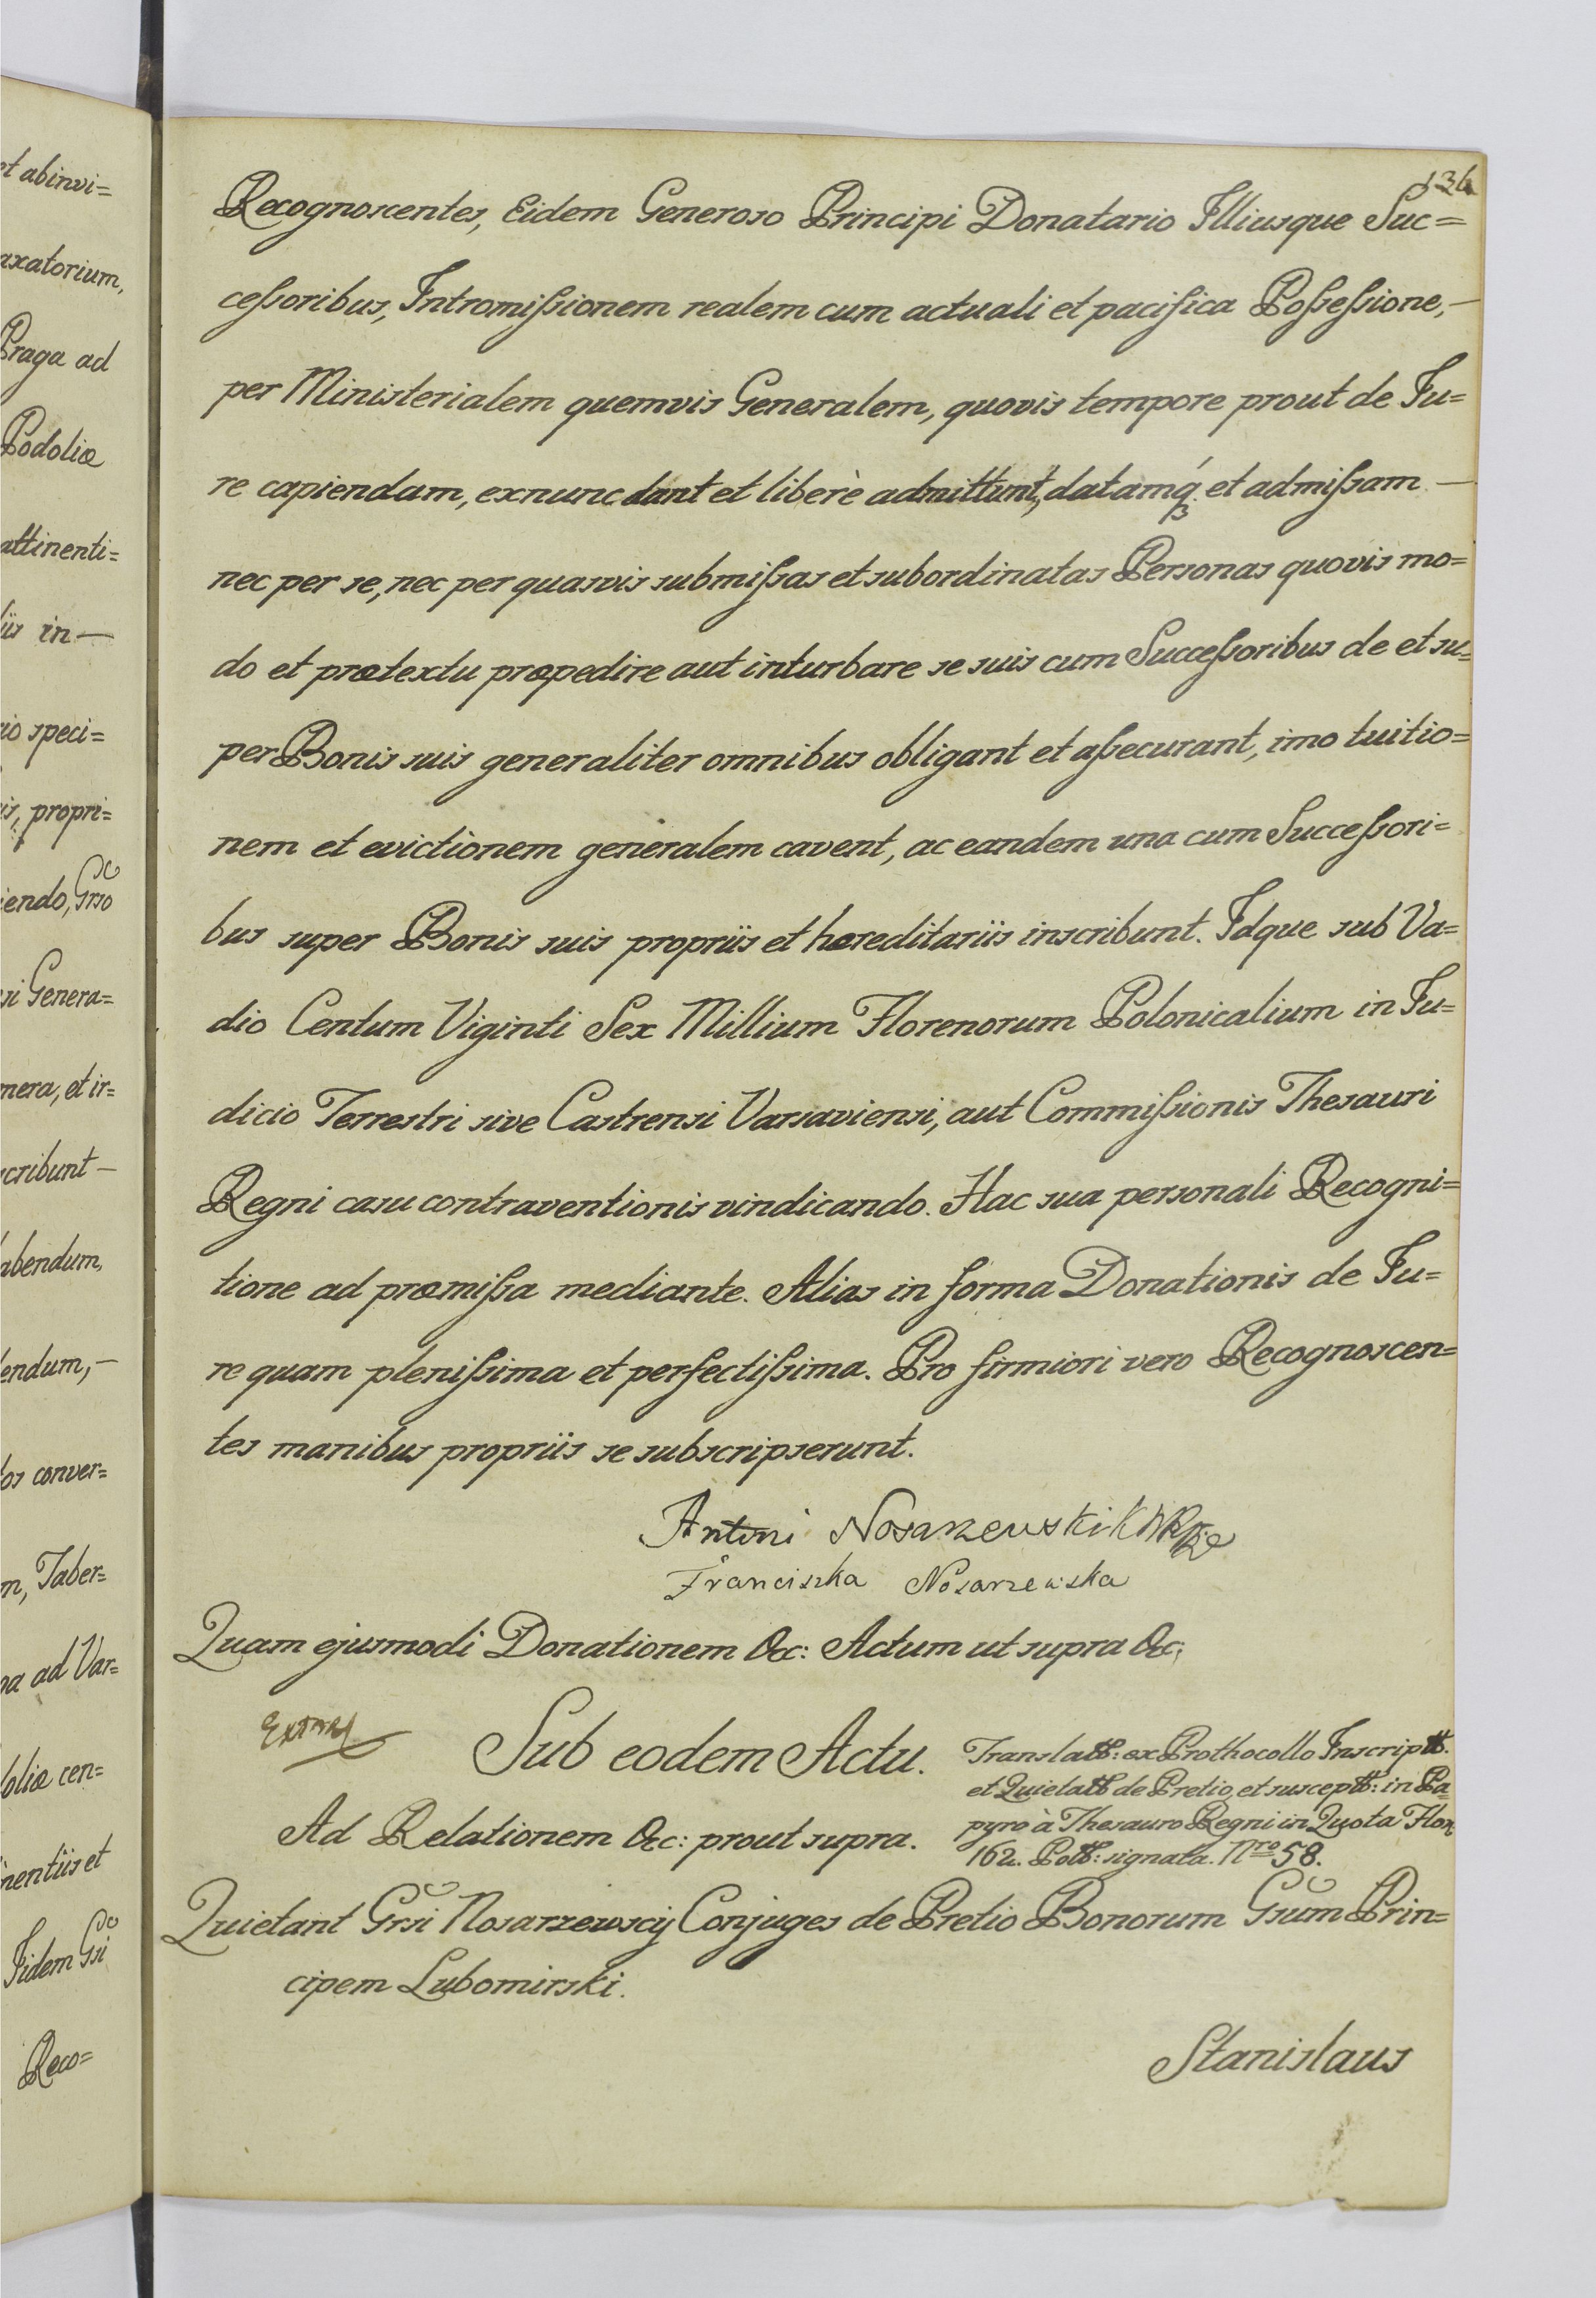 et abinvi=
axatorium,
Praga ad
Podoliæ
attinenti=
iis in —
rio speci=
is, propri=
iendo, Grso
rsi Genera=
nera, et ir=
scribunt —
abendum,
endum, —
tos conver=
m, Taber=
pa ad Var=
doliæ cen=
inentiis et
Iidem Gsi
Reco=
136
Recognoscentes, Eidem Generoso Principi Donatario Illiusque Suc=
ceſsoribus, Intromiſsionem realem cum actuali et pacifica Poſseſsione, —
per Ministerialem quemvis Generalem, quovis tempore prout de Iu=
re capiendam, exnunc dant et liberè admittunt, datamq́ꝫ et admiſsam —
nec per se, nec per quasvis submiſsas et subordinatas Personas quovis mo=
do et prætextu præpedire aut inturbare se suis cum Succeſsoribus de et su=
per Bonis suis generaliter omnibus obligant et aſsecurant, imo tuitio=
nem et evictionem generalem cavent, ac eandem una cum Succeſsori=
bus super Bonis suis propriis et hæreditariis inscribunt. Idque sub Va=
dio Centum Viginti Sex Millium Florenorum Polonicalium in Iu=
dicio Terrestri sive Castrensi Varsaviensi, aut Commiſsionis Thesauri
Regni casu contraventionis vindicando. Hac sua personali Recogni=
tione ad præmiſsa mediante. Alias in forma Donationis de Iu=
re quam pleniſsima et perfectiſsima. Pro firmiori vero Recognoscen=
tes manibus propriis se subscripserunt.
Antoni Nosarzewski
Franciszka Nosarzewska
Quam ejusmodi Donationem &c: Actum ut supra &c;
Sub eodem Actu.
Ad Relationem &c: prout supra.
Translatt: ex Prothocollo Inscriptt.
et Quietatt de Pretio, et susceptt: in Pa=
pyro à Thesauro Regni in Quota Flor
162. Poll: signata. Nro 58.
Quietant Grsi Nosarzewscij Conjuges de Pretio Bonorum Gsum Prin=
cipem Lubomirski.
Stanislaus